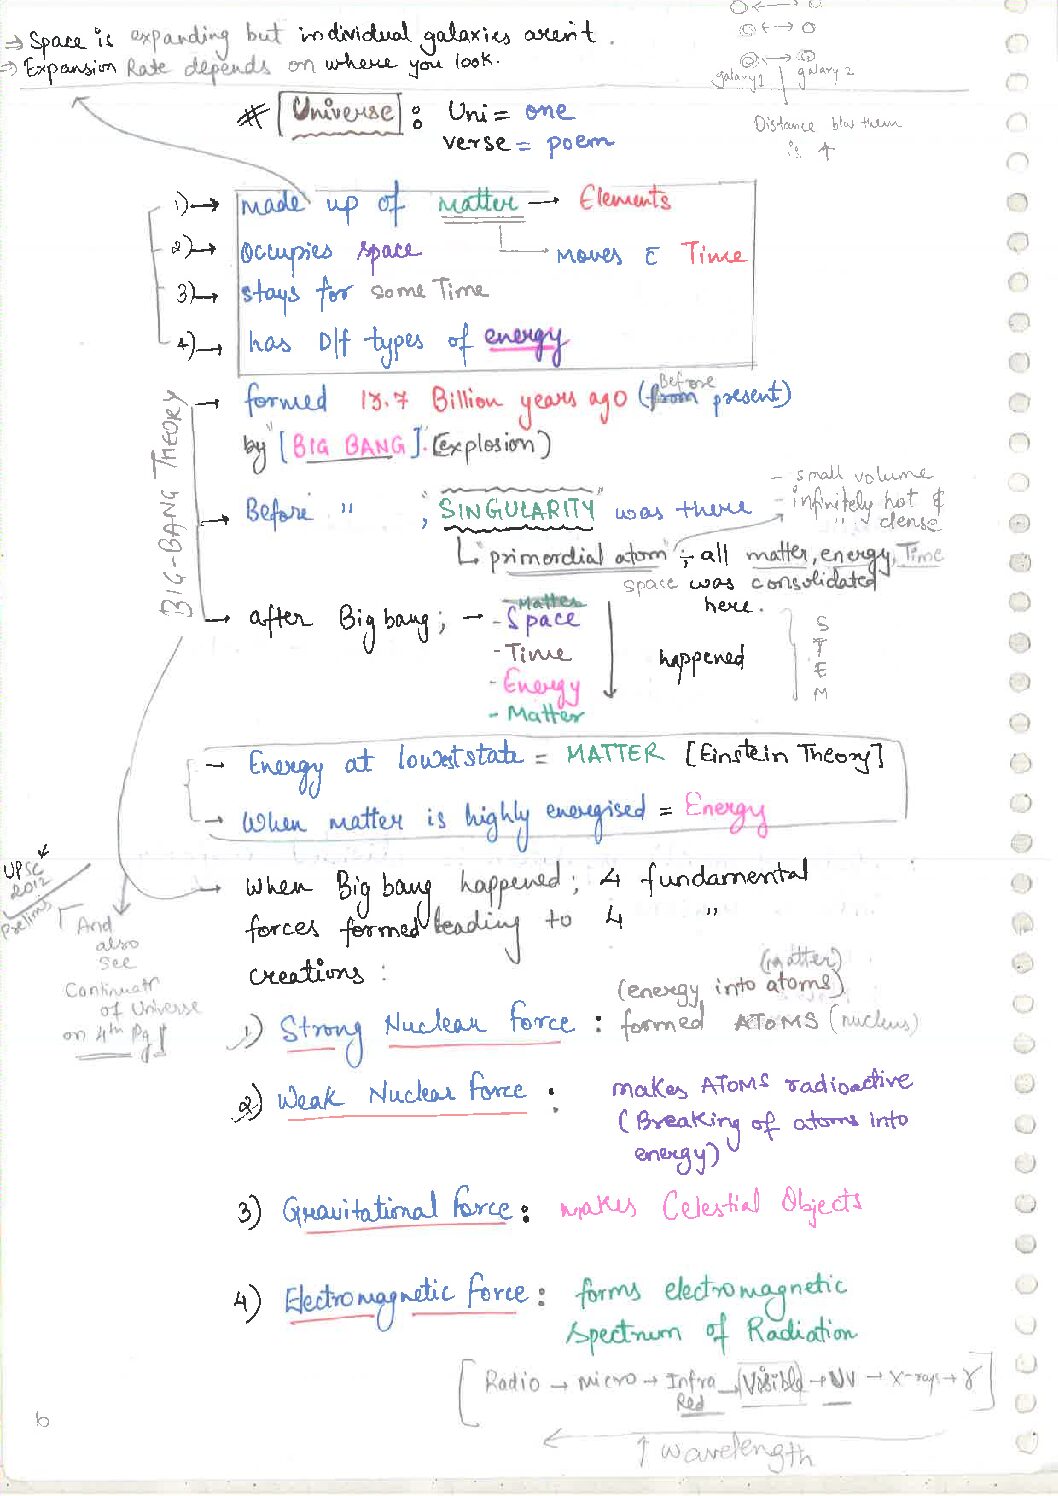 ⇒ Space is expanding but individual galaxies aren't.
⇒ Expansion Rate depends on where you look.
galaxy1 galaxy 2
Distance b/w them
is ↑
# [Universe] : Uni = one
verse = poem
1) → made up of matter → Elements
2) → occupies space → moves Ē Time
3) → stays for some Time
4) → has D/f types of energy
BIG-BANG THEORY
→ formed 13.7 Billion years ago (from present)
Before
by "[BIG BANG]" (explosion)
- small volume
- infinitely hot &
" " dense
→ Before " , "SINGULARITY" was there
↳ "primordial atom" ; all matter, energy, Time
space was consolidated
here.
→ after Big bang ; → - Space
Matter
- Time
- Energy
- Matter
happened
S
T
E
M
→ Energy at lowest state = MATTER [Einstein Theory]
→ When matter is highly energised = Energy
UPSC
2012
prelims
→ when Big bang happened ; 4 fundamental
forces formed leading to 4 "
creations :
And
also
see
Continuatn
of Universe
on 4th Pg!
(matter)
(energy into atoms)
1) Strong Nuclear force : formed ATOMS (nucleus)
2) Weak Nuclear force : makes ATOMS radioactive
(Breaking of atoms into
energy)
3) Gravitational force : makes Celestial Objects
4) Electromagnetic force : forms electromagnetic
spectrum of Radiation
[Radio → micro → Infra Red → Visible → UV → X-rays → γ]
← ↑ wavelength
6